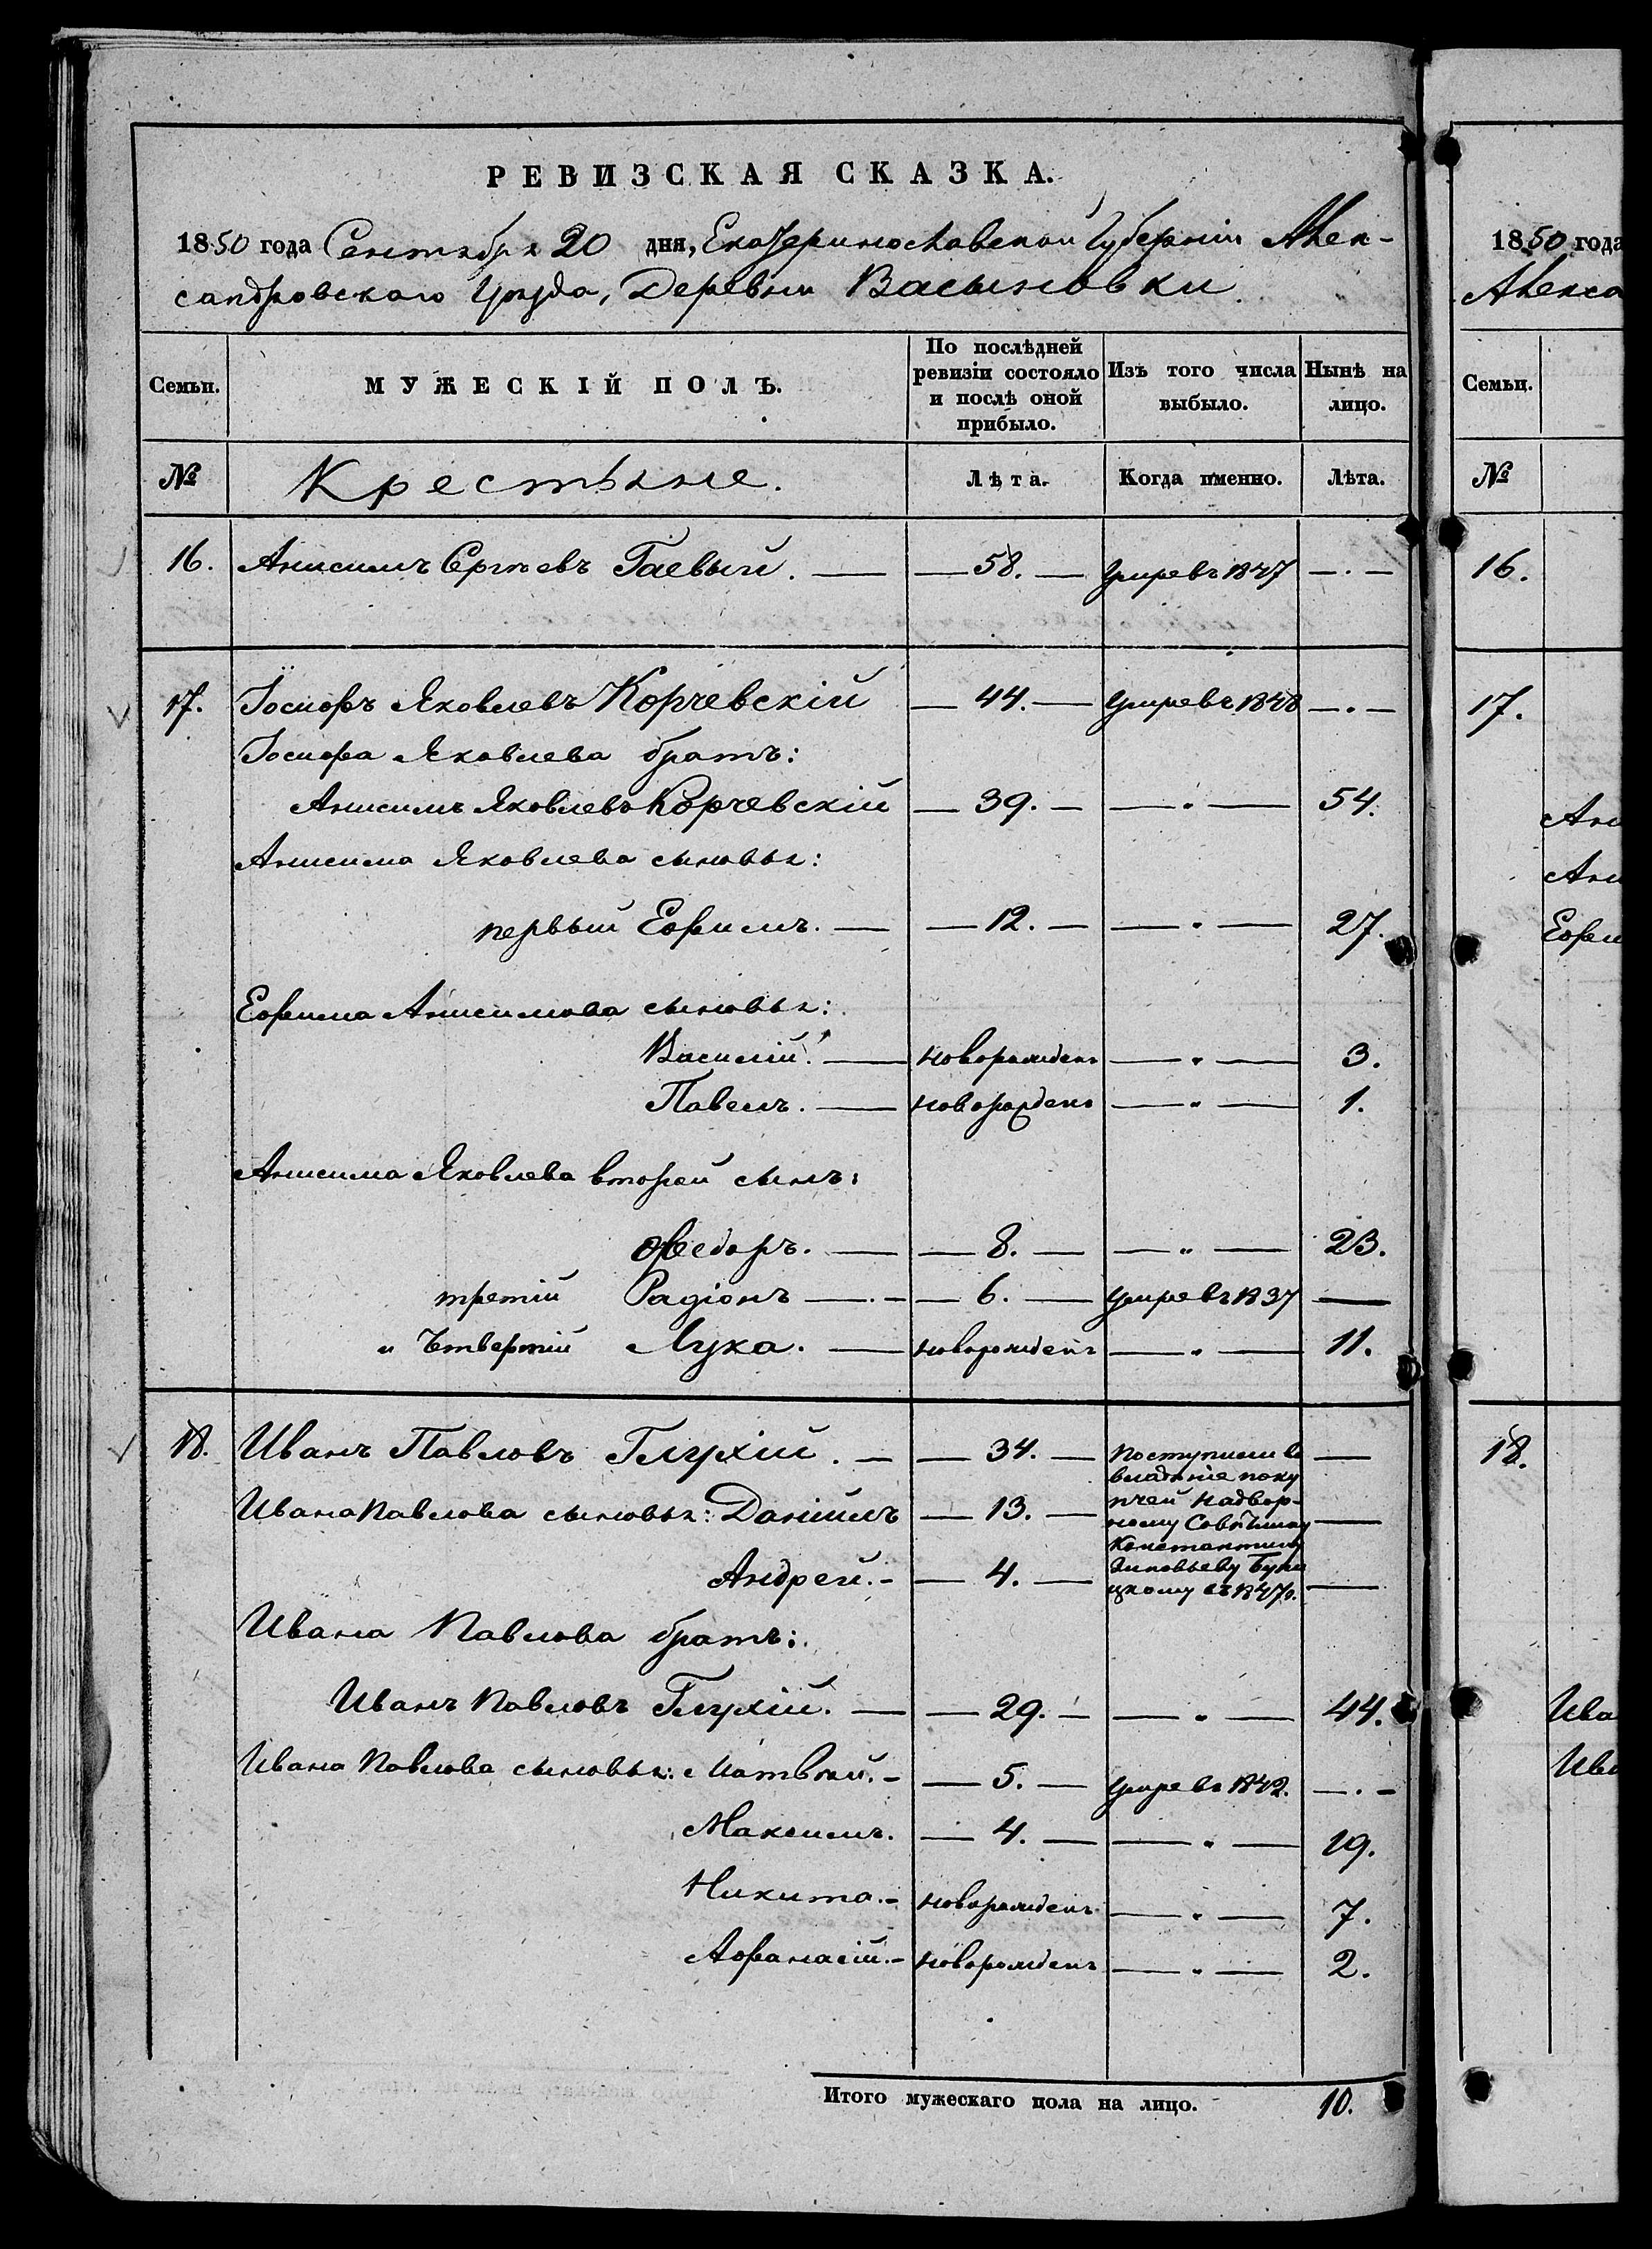 РЕВИЗСКАЯ СКАЗКА.
1850 года Сентября 20 дня, Екатеринославской Губерніи Алек-
сандровскаго Уѣзда, Деревни Васыновки.
Семьи. МУЖЕСКІЙ ПОЛЪ. По послѣдней ревизіи состояло и послѣ оной прибыло. Изъ того числа выбыло. Нынѣ на лицо.
№ Крестьяне. Лѣта. Когда именно. Лѣта.
16. Анисимъ Сергѣевъ Гаевый. — — 58. — Умре въ 1847 — . —
17. Іосифъ Яковлевъ Корчевскій — 44. — Умре въ 1848 — . —
Іосифа Яковлева братъ:
Анисимъ Яковлевъ Корчевскій — 39. — — „ — 54.
Анисима Яковлева сыновья:
первый Ефимъ. — — 12. — — „ — 27.
Ефима Анисимова сыновья:
Василій. — новорожденъ — „ — 3.
Павелъ. — новорожденъ — „ — 1.
Анисима Яковлева второй сынъ:
Федоръ. — — 8. — — „ — 23.
третій Радіонъ — . — — 6. — Умре въ 1837 —
и Чтвертій Лука. — новорожденъ — „ — 11.
18. Иванъ Павловъ Глухій. — — 34. — Поступили во —
владѣніе поку
Ивана Павлова сыновья: Даніилъ — 13. — пчей Надвор-
ному Совѣтнику —
Константину
Андрей. — — 4. — Зиновьеву
цкому въ 1847 г. —
Ивана Павлова братъ:
Иванъ Павловъ Глухій. — — 29. — — „ — 44.
Ивана Павлова сыновья: Матвѣй. — — 5. — Умре въ 1842. — . —
Максимъ. — 4. — — „ — 19.
Никита. — новорожденъ — „ — 7.
Афанасій. — новорожденъ — „ — 2.
Итого мужескаго пола на лицо. 10.
1850 года
Алекса
Семьи.
№
16.
17.
Ани
Ани
Ефи
18.
Ива
Ива